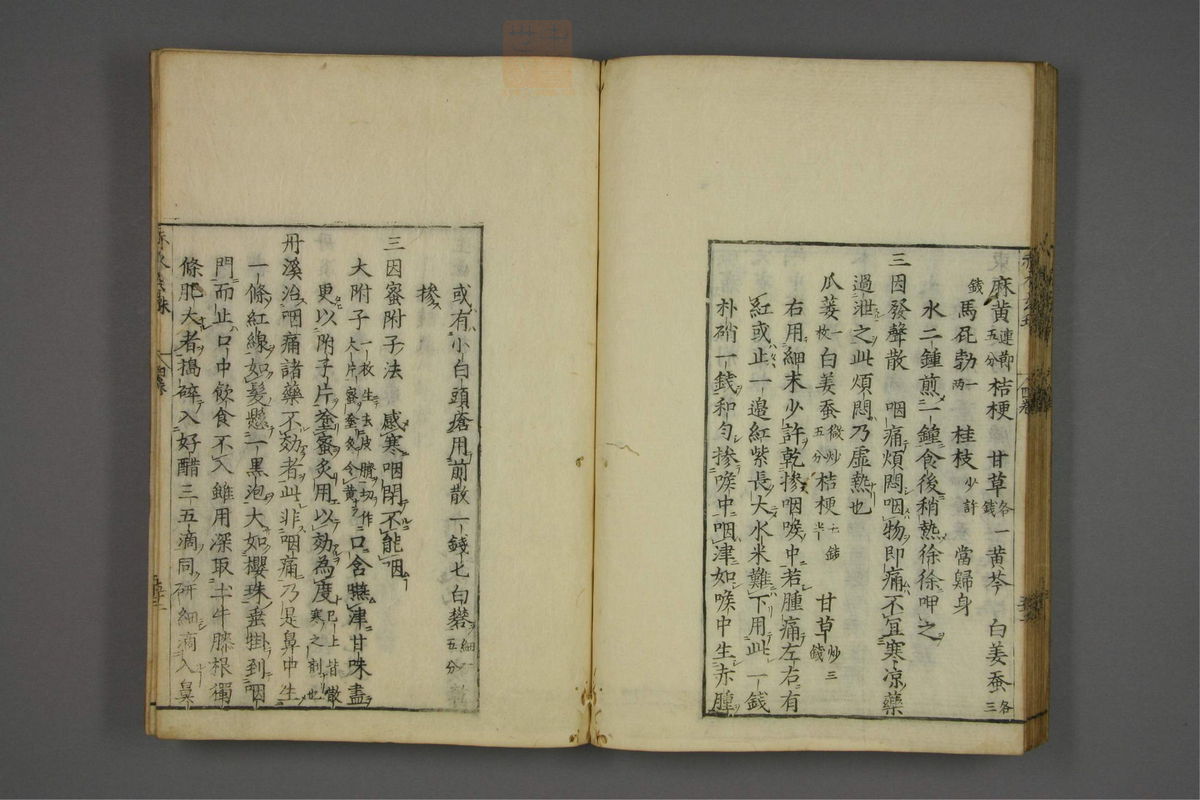 麻黄連節五分 桔梗 甘草各一錢 黄芩 白姜蚕各三
錢 馬屁勃一兩 桂枝少許 當歸身
水二鍾煎一鍾食後稍熱徐徐呷之
三因發聲散 咽痛煩悶咽物即痛不宜寒凉藥
過泄之此煩悶乃虛熱也
瓜蔞一枚 白姜蚕微炒五分 桔梗七錢半 甘草炒三錢
右用細末少許乾摻咽喉中若腫痛左右有
紅或止一邊紅紫長大水米難下用此一錢
朴硝一錢和勻摻喉中咽津如喉中生赤腫
或有小白頭瘡用前散一錢七白礬細五分
摻
三因蜜附子法 感寒咽閉不能咽
大附子一枚生去皮臍切作大片蜜塗炙令黄 口含嚥津甘味盡
更以附子片塗蜜炙用以効為度已上皆散寒之剤也
丹溪治咽痛諸藥不効者此非咽痛乃是鼻中生
一條紅線如髪懸一黒泡大如櫻珠垂掛到咽
門而止口中飲食不入雖用深取土牛膝根獨
條肥大者搗碎入好醋三五滴同研細滴入鼻